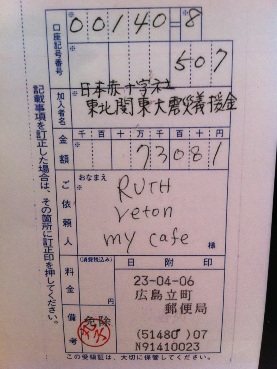 口座記号番号
00140=8
507
加入者名
日本赤十字社
東北関東大震災義援金
金額
千百十万千百十円
73081
ご依頼人
おなまえ
RUTH
veton
my cafe
様
料金
(消費税込み)
円
日附印
23-04-06
広島立町
郵便局
(51480 )07
N91410023
備考
免除
記載事項を訂正した場合は、その箇所に訂正印を押してください。
この受領証は、大切に保管してください。